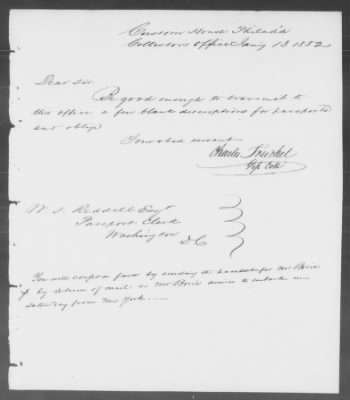 Custom House Philad'a
Collectors Office Jan'y 13 1852
Dear Sir.
Be good enough to transmit to
this office a few blank descriptions for passports
and oblige
Your obed servant
Charles
Dep. Coll
W. S. Reddall Esqr.
Passport Clerk
Washington
D.C
You will confer a favor by sending the passport for Mr Borie
by return of mail as Mr Borie desires to embark on
Saturday from New York.